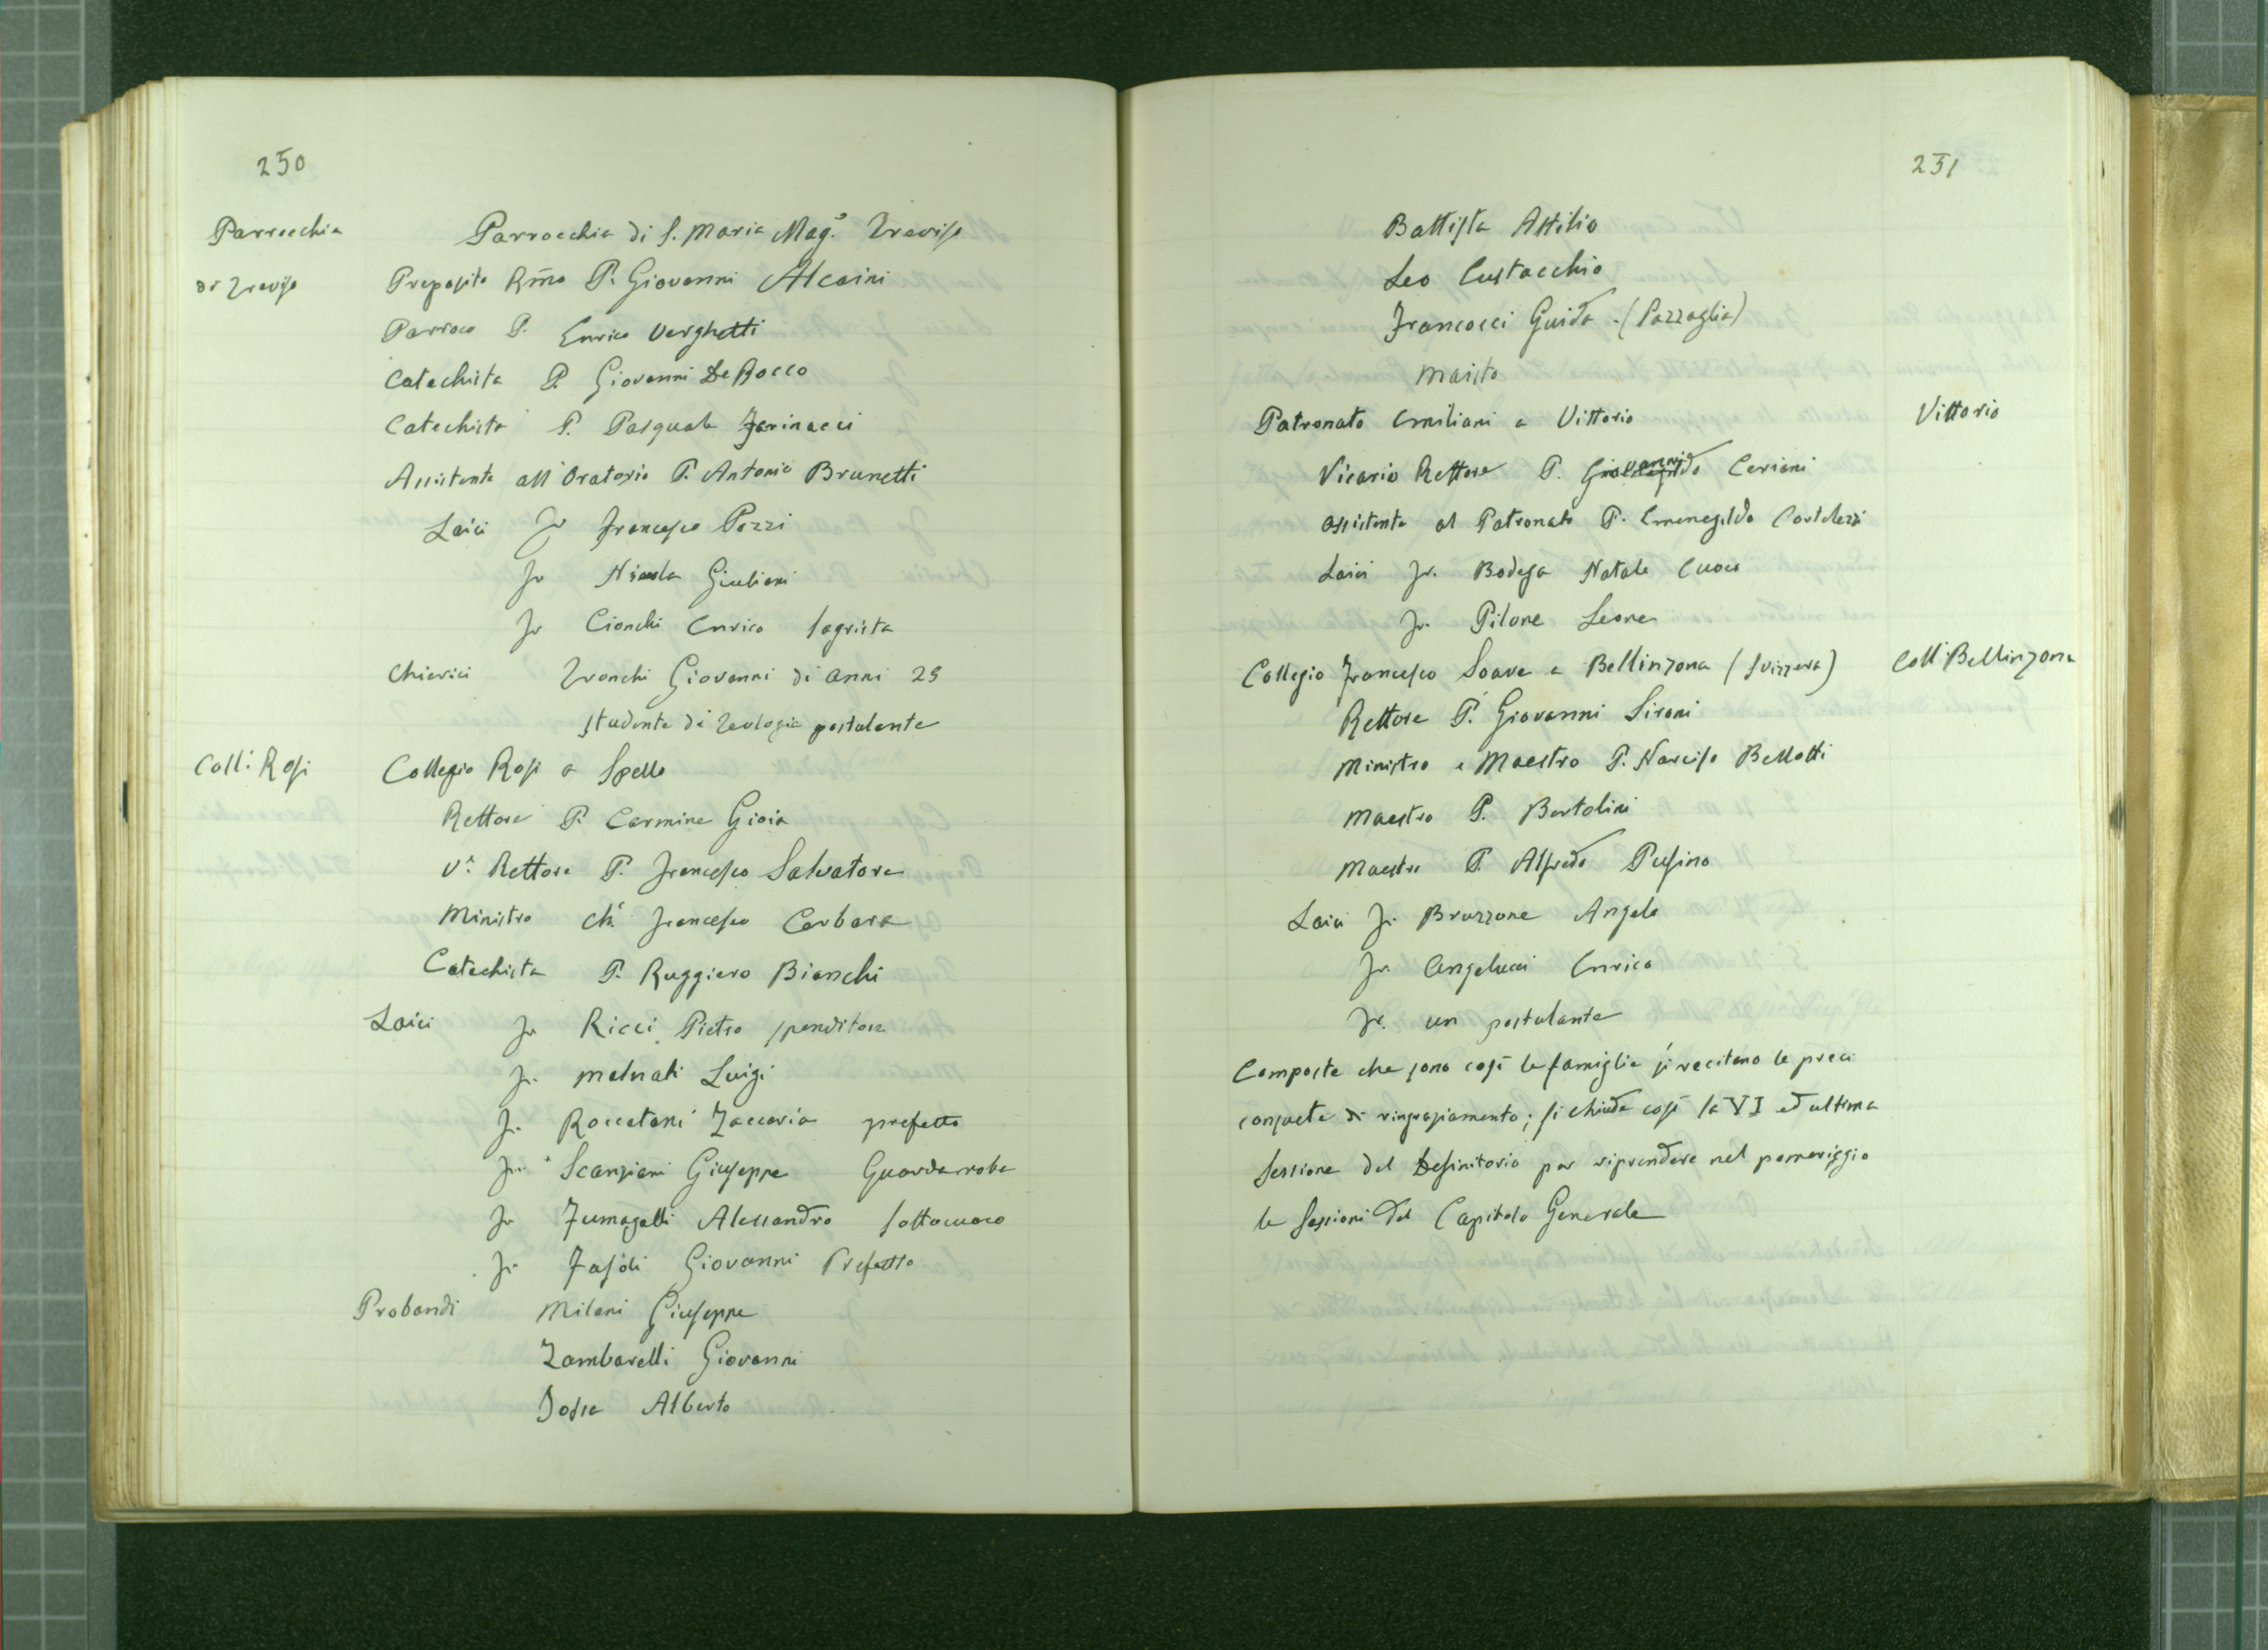 250
Parrocchia
di Treviso
Parrocchia di S. Maria Mag.e Treviso
Preposito Rmo P. Giovanni Alcaini
Parroco P. Enrico Verghetti
Catechista P. Giovanni De Rocco
Catechista P. Pasquale Farinacci
Assistente all'Oratorio P. Antonio Brunetti
Laici Fr Francesco Pozzi
Fr Nicola Giuliani
Fr Cionchi Enrico sagrista
Chierici Tronchi Giovanni di anni 25
studente di teologia postulante
Coll: Rosi
Collegio Rosi a Spello
Rettore P. Carmine Gioia
V. Rettore P. Francesco Salvatore
Ministro Ch. Francesco Cerbara
Catechista P. Ruggiero Bianchi
Laici Fr Ricci Pietro spenditore
Fr. Malnati Luigi
Fr. Roccatani Zaccaria prefetto
Fr. Scanziani Giuseppe Guardaroba
Fr Fumagalli Alessandro sottocuoco
Fr Fasoli Giovanni Prefetto
Probandi Milani Giuseppe
Zambarelli Giovanni
Alberto
251
Battista Attilio
Leo Eustacchio
Francocci Guido. (Pazzaglia)
Maisto
Vittorio
Patronato Emiliani a Vittorio
Vicario Rettore P. Giovanni Ceriani
Assistente al Patronato P. Ermenegildo Cortelezzi
Laici Fr. Bodega Natale Cuoco
Fr. Pilone Leone
Coll Bellinzona
Collegio Francesco Soave a Bellinzona (Svizzera)
Rettore P. Giovanni Sironi
Ministro e Maestro P. Narciso Bellotti
Maestro P. Bortolini
Maestro P. Alfredo Pusino
Laici Fr. Bruzzone Angelo
Fr. Angelucci Enrico
Fr. un postulante
Composte che sono così le famiglie si recitano le preci
consuete di ringraziamento; si chiude così la VI ed ultima
Sessione del Definitorio per riprendere nel pomeriggio
le Sessioni del Capitolo Generale